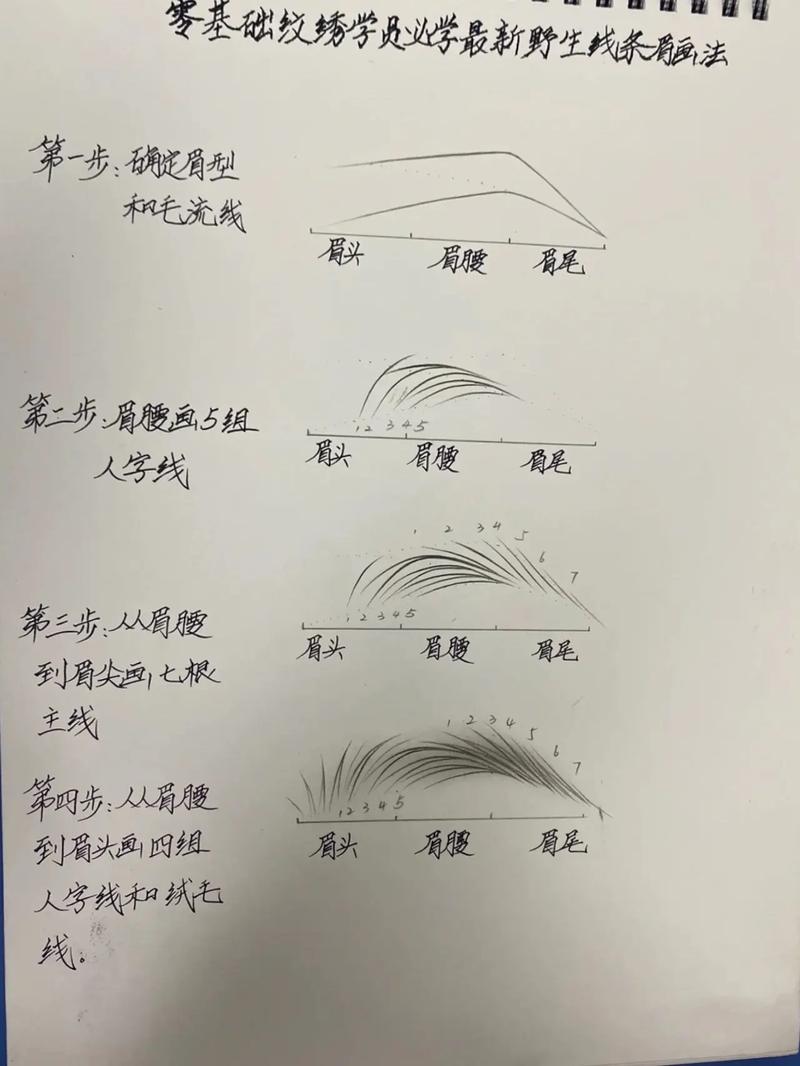 零基础纹绣学员必学最新野生线条眉画法
第一步:确定眉型
和毛流线
眉头 眉腰 眉尾
第二步:眉腰画5组
人字线
1 2 3 4 5
眉头 眉腰 眉尾
1 2 3 4 5 6 7
第三步:从眉腰
到眉尖画七根
主线
1 2 3 4 5
眉头 眉腰 眉尾
1 2 3 4 5 6 7
第四步:从眉腰
到眉头画四组
人字线和绒毛
线。
1 2 3 4 5
眉头 眉腰 眉尾